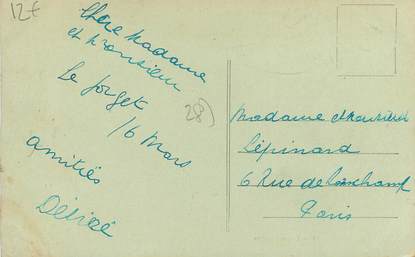 12€
Chère Madame
et Monsieur
Le forget
16 Mars
28)
amitiés
Désiré
Madame et Monsieur
Lépinard
6 Rue de Longchamp
Paris